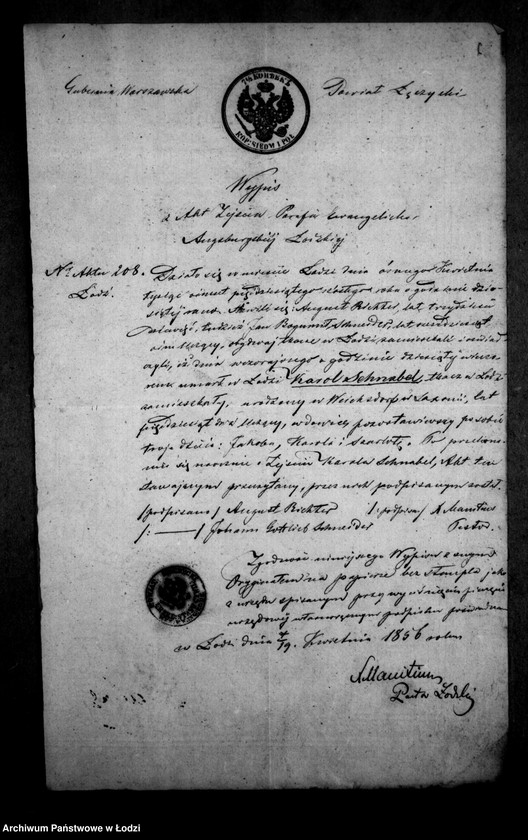 Gubernia Warszawska
7½ КОПѢЕКЪ
KOP. SIEDM I PÓŁ
Powiat Łęczycki
Wypis
z Akt Zejścia Parafii Ewangelicko-
Augsburgskiej Łodzkiej
Nr Aktu 208.
Łódź.
Działo się w mieście Łodzi dnia ósmego Kwietnia
tysiąc ośmset pięćdziesiątego szóstego roku o godzinie dzie-
siątej rano. Stawili się: August Richter, lat trzydzieści
, tudzież Jan Bogumił Schneider, lat
ośm liczący, obydwaj tkacze w Łodzi zamieszkali i oświad-
czyli, iż dnia wczorajszego o godzinie dziesiątej wieczo-
rem umarł w Łodzi Karol Schnabel, tkacz w Łodzi
zamieszkały, urodzony w Saxonii, lat
pięćdziesiąt dwa liczący, wdowiec, pozostawiwszy po sobie
troje dzieci: Jakoba, Karola i Szarlottę. Po przekona-
niu się naocznie o Zejściu Karola Schnabel, Akt ten
stawającym przeczytany, przez nich podpisanym został.
/podpisano/ August Richter /:podpisano/ K. Manitius
/: —— / Johann Gottlieb Schneider Pastor.
Zgodność niniejszego Wypisu z swym
Oryginałem na papierze bez stempla jako
z urzędu spisanym przy wyciśnięciu pieczęci
urzędowej własnoręcznym podpisem poświadcza
w Łodzi dnia 7/19. Kwietnia 1856 roku
Manitius
Pastor Łodzki
Archiwum Państwowe w Łodzi